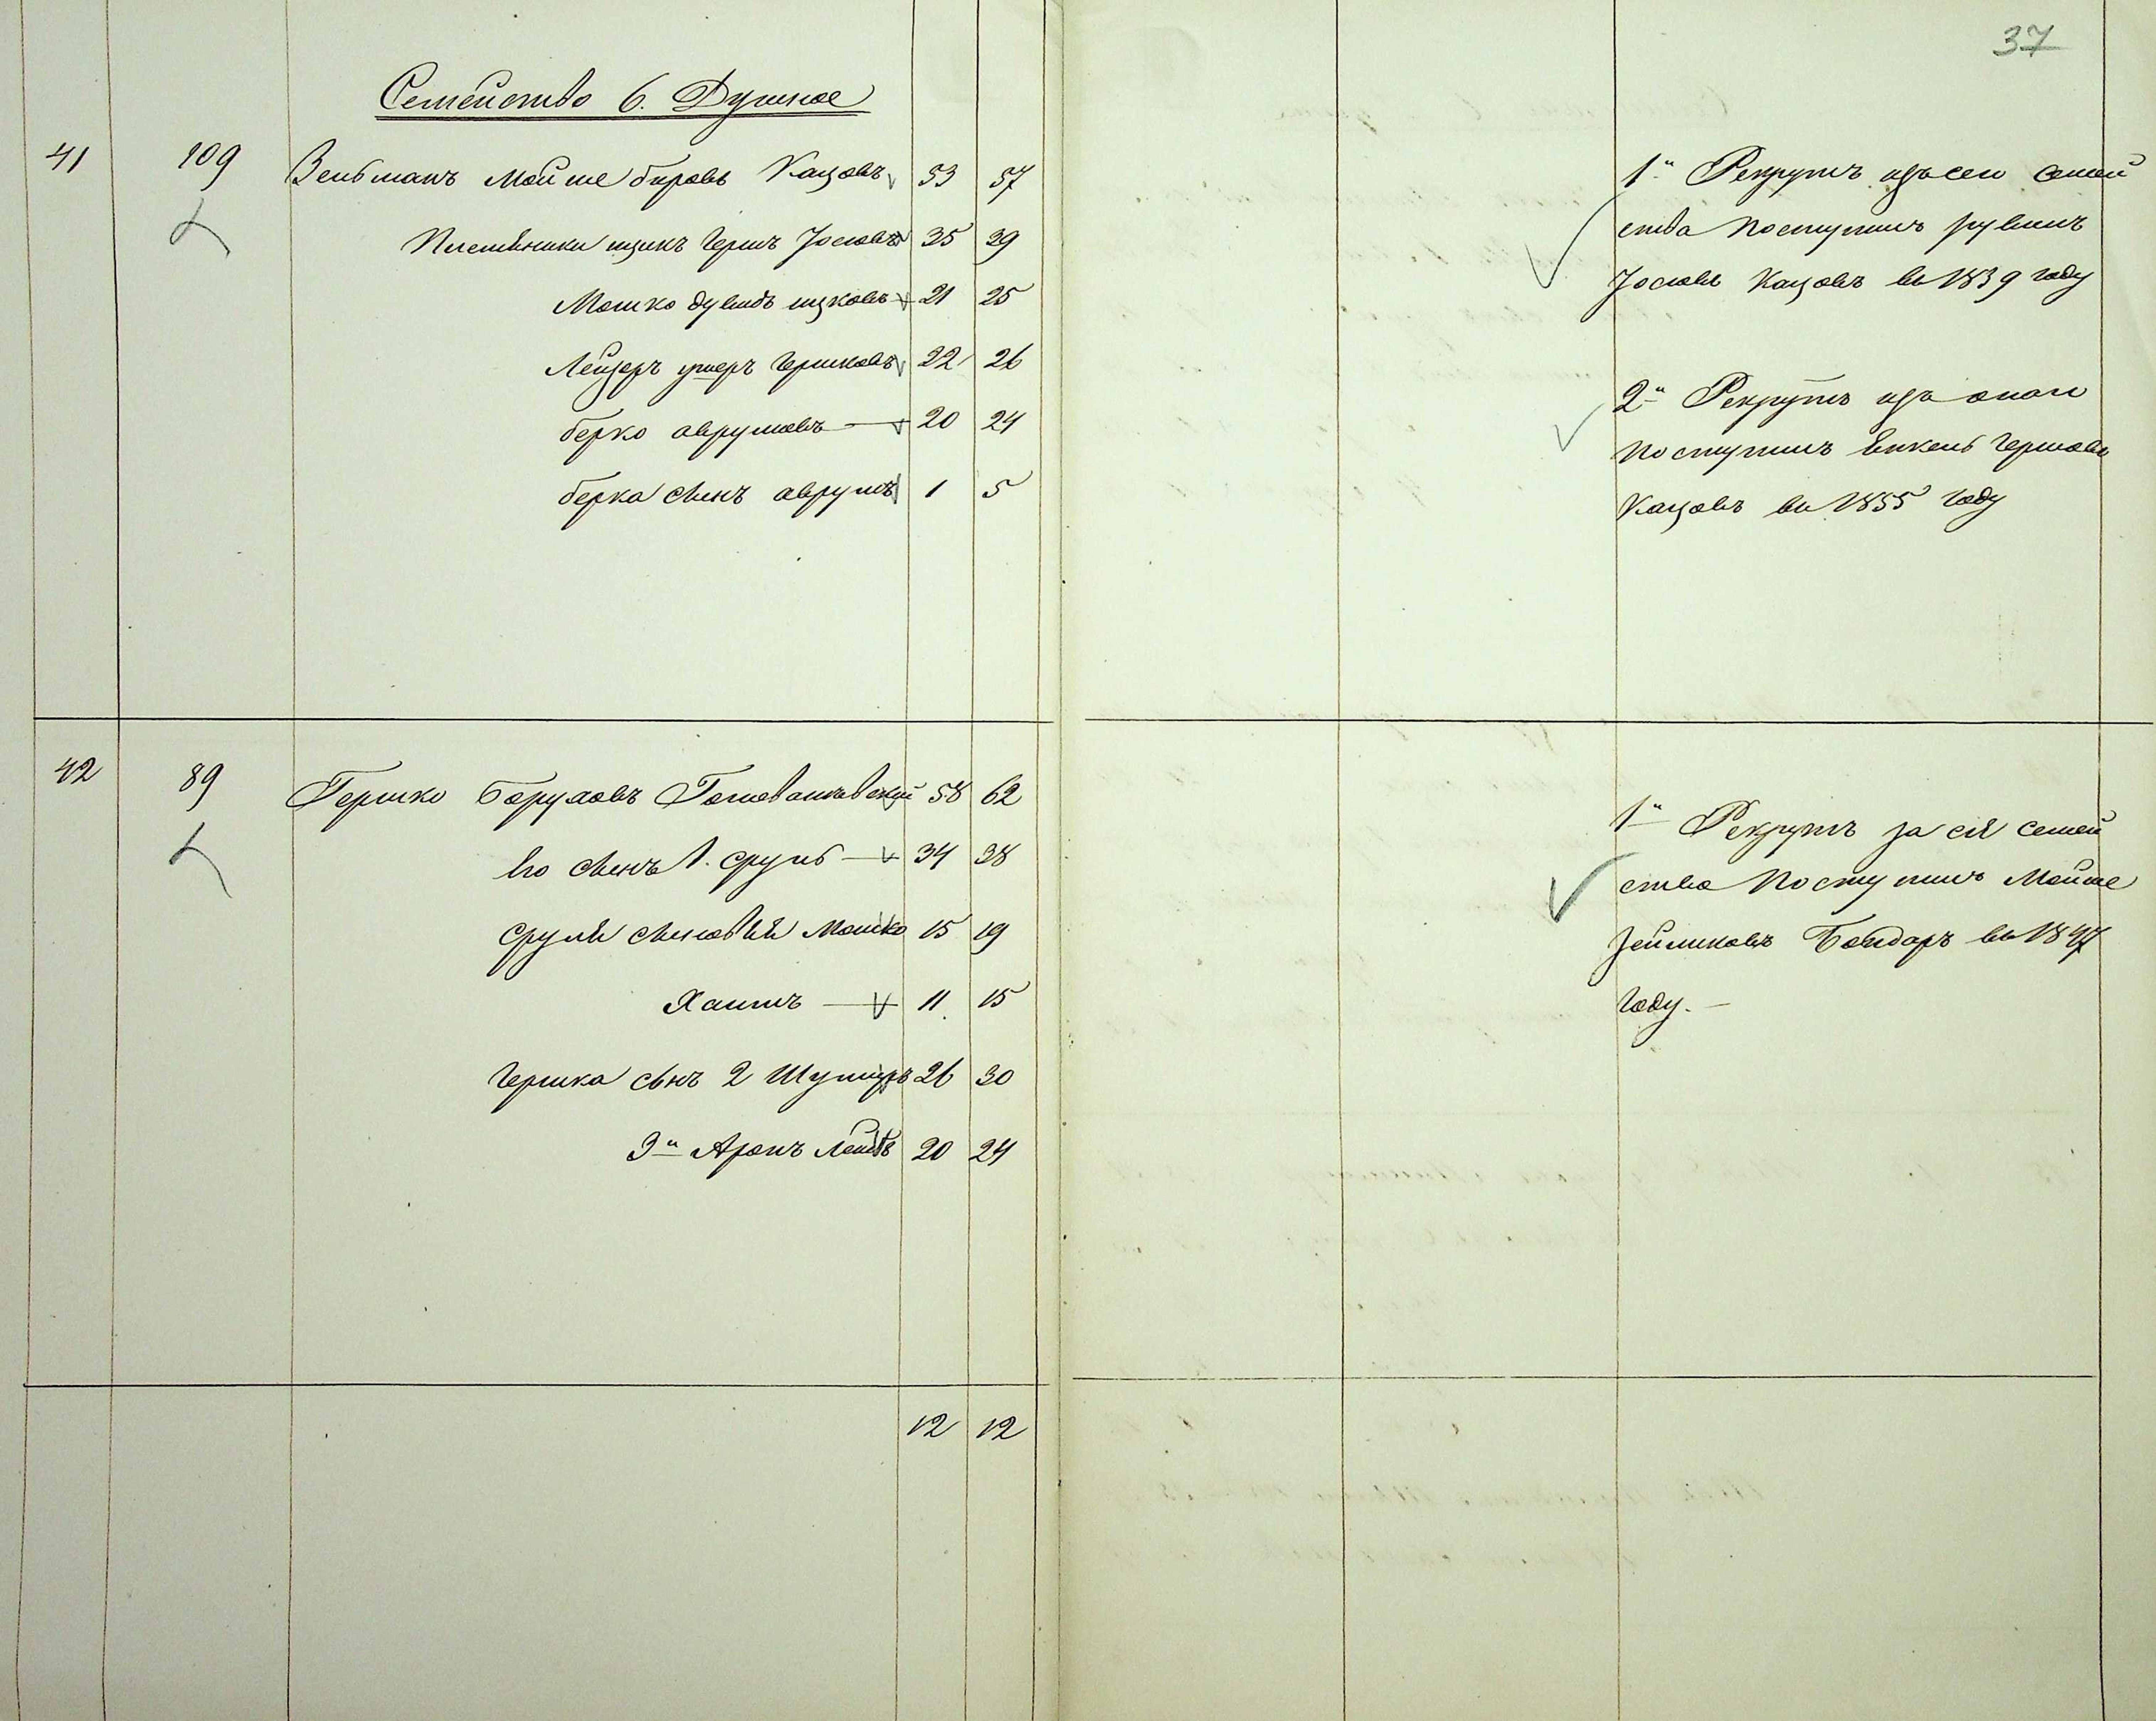 37
Семейство 6. Душное
41 109 Зельманъ Мойше бировъ Кацовъ 53 57
Племѣники ицикъ Гершъ Іосіовъ 35 39
Мошко дувидъ ицковъ 21 25
Лейзеръ умеръ Гершковъ 22 26
берко аврумовъ — 20 24
берка сынъ аврумъ 1 5
1й Рекрутъ изъ сего семей
ства поступилъ рувинъ
Іосіовъ Кацовъ въ 1839 году
2й Рекрутъ изъ оного
поступилъ Янкель Гершовъ
Кацовъ въ 1855 году
42 89 Гершко Боруховъ 58 62
Его сынъ 1. Сруль — 34 38
Сруля сыновья Мошко 15 19
Хаимъ — 11 15
Гершка сынъ 2 26 30
3й Аронъ Лейбъ 20 24
1й Рекрутъ за сія семей
ства поступилъ Мойше
Зейликовъ Бондаръ въ 1847
году. —
12 12